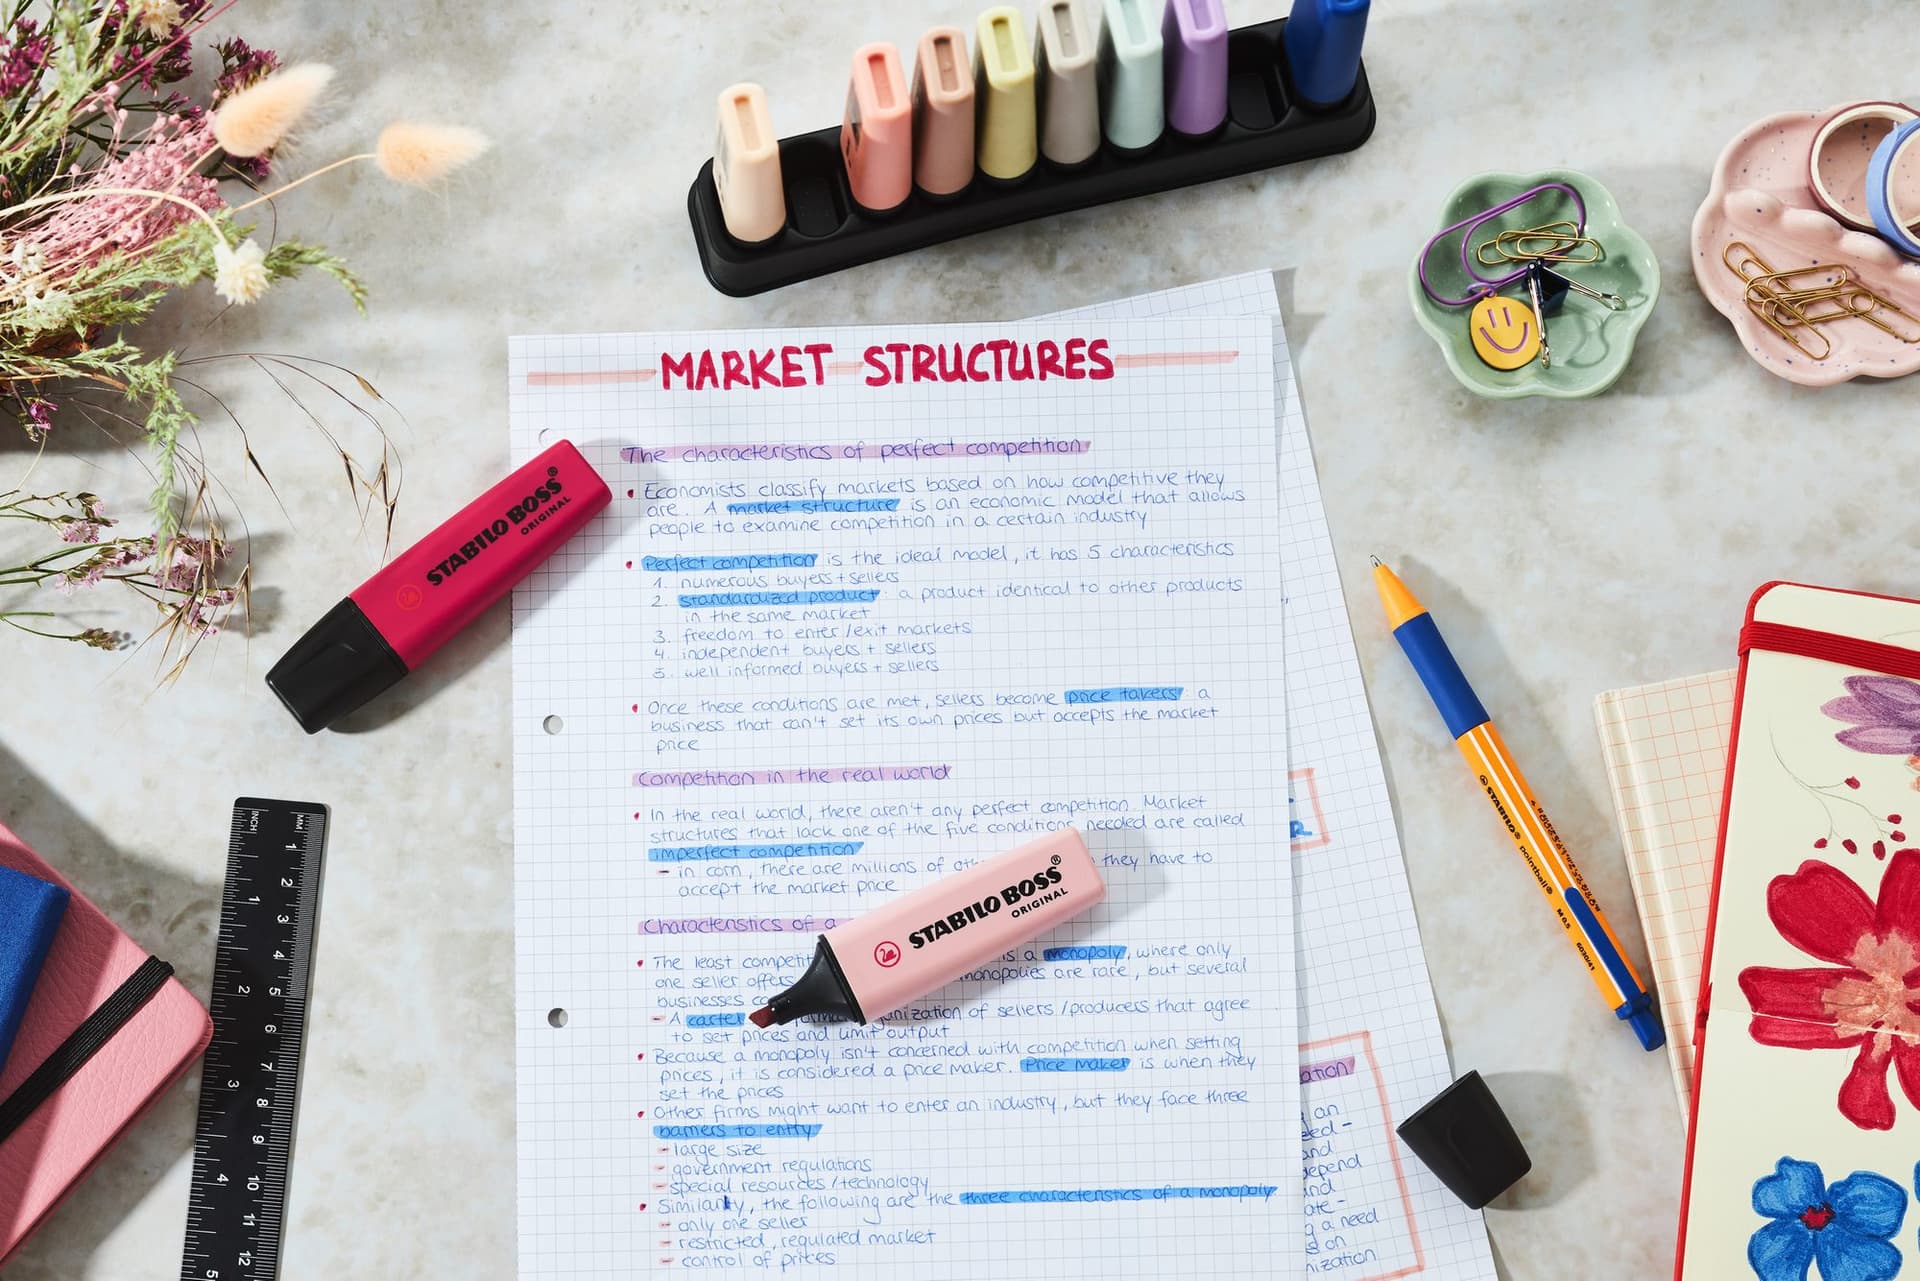 MARKET STRUCTURES
The characteristics of perfect competition
Economists classify markets based on how competitive they
are. A market structure is an economic model that allows
people to examine competition in a certain industry
Perfect competition is the ideal model, it has 5 characteristics
1. numerous buyers + sellers
2. standardized product: a product identical to other products
in the same market
3. freedom to enter/exit markets
4. independent buyers + sellers
5. well informed buyers + sellers
Once these conditions are met, sellers become price takers: a
business that can't set its own prices but accepts the market
price
Competition in the real world
In the real world, there aren't any perfect competition. Market
structures that lack one of the five conditions needed are called
imperfect competition
- in corn, there are millions of they have to
accept the market price
Characteristics of a
The least is a monopoly, where only
one seller offers monopolies are rare, but several
businesses
- A cartel of sellers/producers that agree
to set prices and limit output
Because a monopoly isn't concerned with competition when setting
prices, it is considered a price maker. Price maker is when they
set the prices
Other firms might want to enter an industry, but they face three
barriers to entry
- large size
- government regulations
- special resources/technology
Similarly, the following are the three characteristics of a monopoly
- only one seller
- restricted, regulated market
- control of prices
STABILO BOSS®
ORIGINAL
STABILO BOSS®
ORIGINAL
STABILO® pointball® M 0.5 6030/41
INCH
MM
1 2 3 4 5 6 7 8 9 10 11 12
1 2 3 4 5
an
and
a need
on